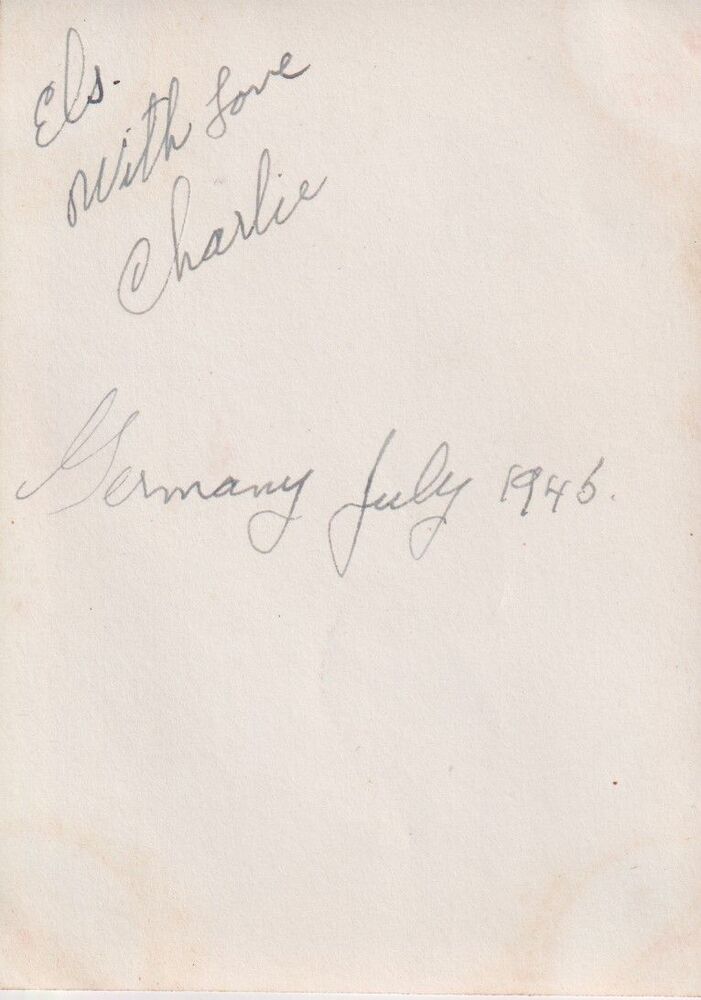 Els.
With Love
Charlie
Germany July 1945.